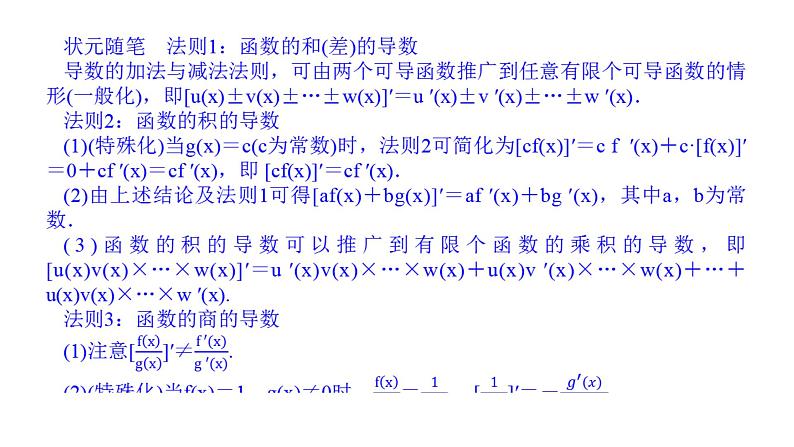 状元随笔　法则1：函数的和(差)的导数
导数的加法与减法法则，可由两个可导函数推广到任意有限个可导函数的情
形(一般化)，即[u(x)±v(x)±…±w(x)]′＝u ′(x)±v ′(x)±…±w ′(x)．
法则2：函数的积的导数
(1)(特殊化)当g(x)＝c(c为常数)时，法则2可简化为[cf(x)]′＝c f ′(x)＋c·[f(x)]′
＝0＋cf ′(x)＝cf ′(x)，即 [cf(x)]′＝cf ′(x)．
(2)由上述结论及法则1可得[af(x)＋bg(x)]′＝af ′(x)＋bg ′(x)，其中a，b为常
数．
(3)函数的积的导数可以推广到有限个函数的乘积的导数，即
[u(x)v(x)×…×w(x)]′＝u ′(x)v(x)×…×w(x)＋u(x)v ′(x)×…×w(x)＋…＋
u(x)v(x)×…×w ′(x).
法则3：函数的商的导数
(1)注意[f(x)/g(x)]′≠f ′(x)/g ′(x).
(2)(特殊化)当f(x)＝1，g(x)≠0时，f(x)/＝1/，[1/]′＝－g′(x)/